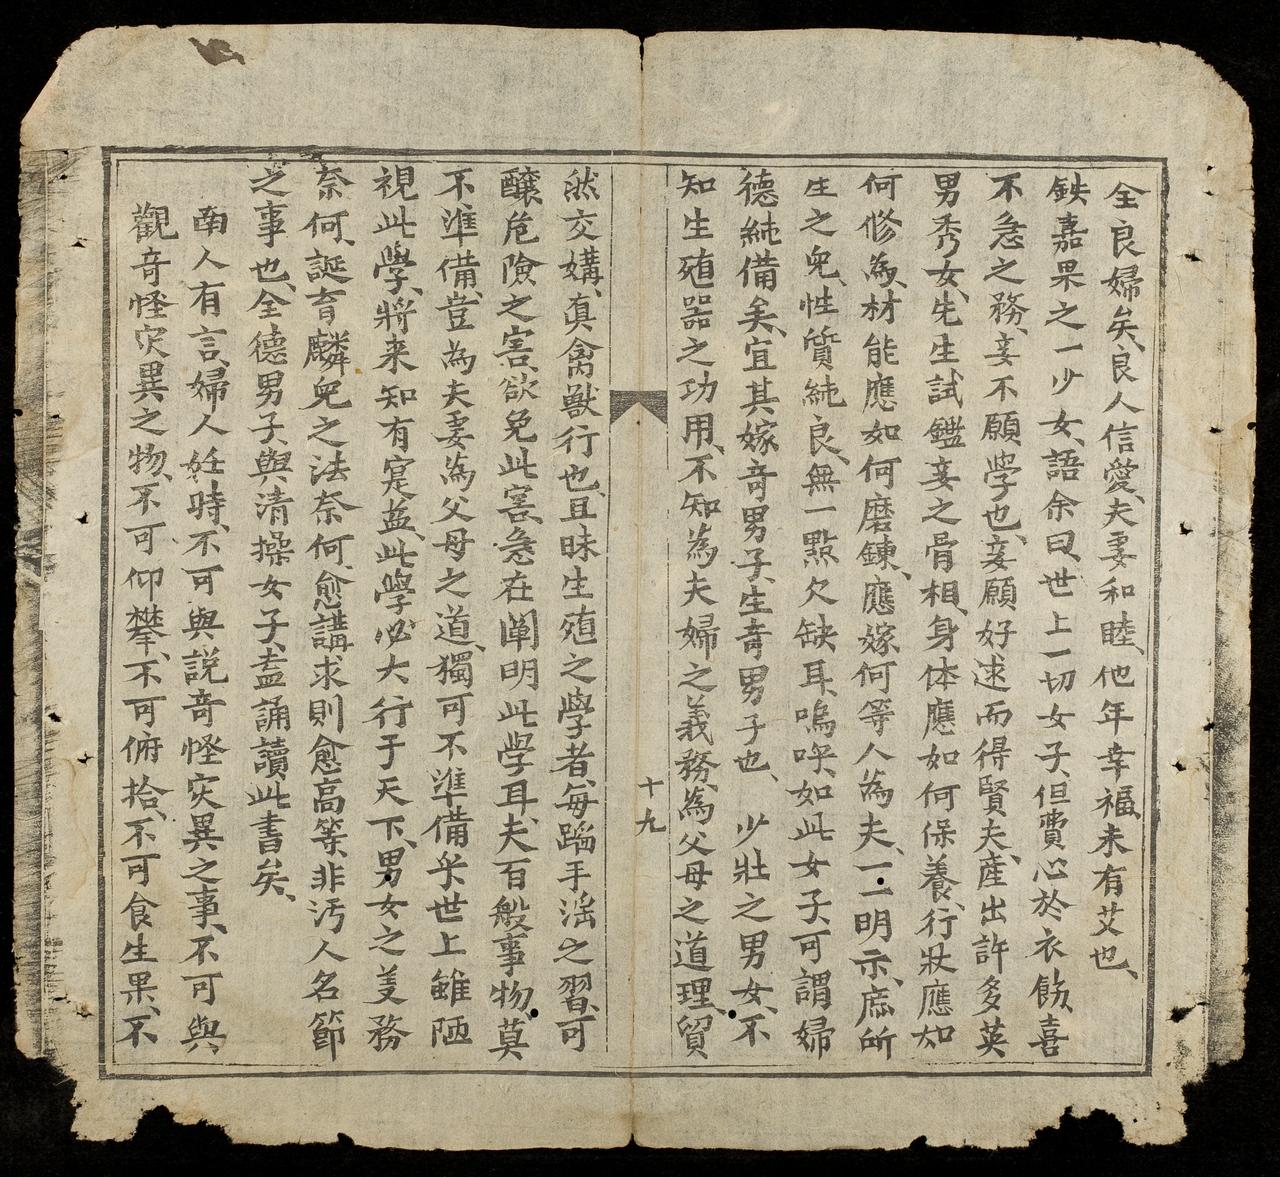 全良婦矣、良人信愛、夫妻和睦、他年幸福、未有艾也、
鉄嘉果之一少女、語余曰、世上一切女子、但費心於衣餙、喜
不急之務、妾不願学也、妾願好逑而得賢夫、產出許多英
男秀女、先生試鑑妾之骨相、身体應如何保養、行狀應如
何修為、材能應如何磨鍊、應嫁何等人為夫、一一明示、庶所
生之兒、性質純良、無一點欠缺耳、嗚呼、如此女子、可謂婦
德純備矣、宜其嫁竒男子、生竒男子也、 少壯之男女、不
知生殖器之功用、不知為夫婦之義務、為父母之道理、貿
十九
然交媾、真禽獸行也、且昧生殖之學者、每蹈手滛之習、可
釀危險之害、欲免此害、急在闡明此学耳、夫百般事物、莫
不準備、豈為夫妻為父母之道、獨可不準備乎、世上雖陋
視此學、將来知有寔益、此學必大行于天下、男女之羙務
奈何、誕育麟兒之法奈何、愈講求則愈高等、非污人名節
之事也、全德男子、與清操女子、盍誦讀此書矣、
南人有言、婦人妊時、不可與説竒怪灾異之事、不可與
觀竒怪灾異之物、不可仰攀、不可俯拾、不可食生果、不